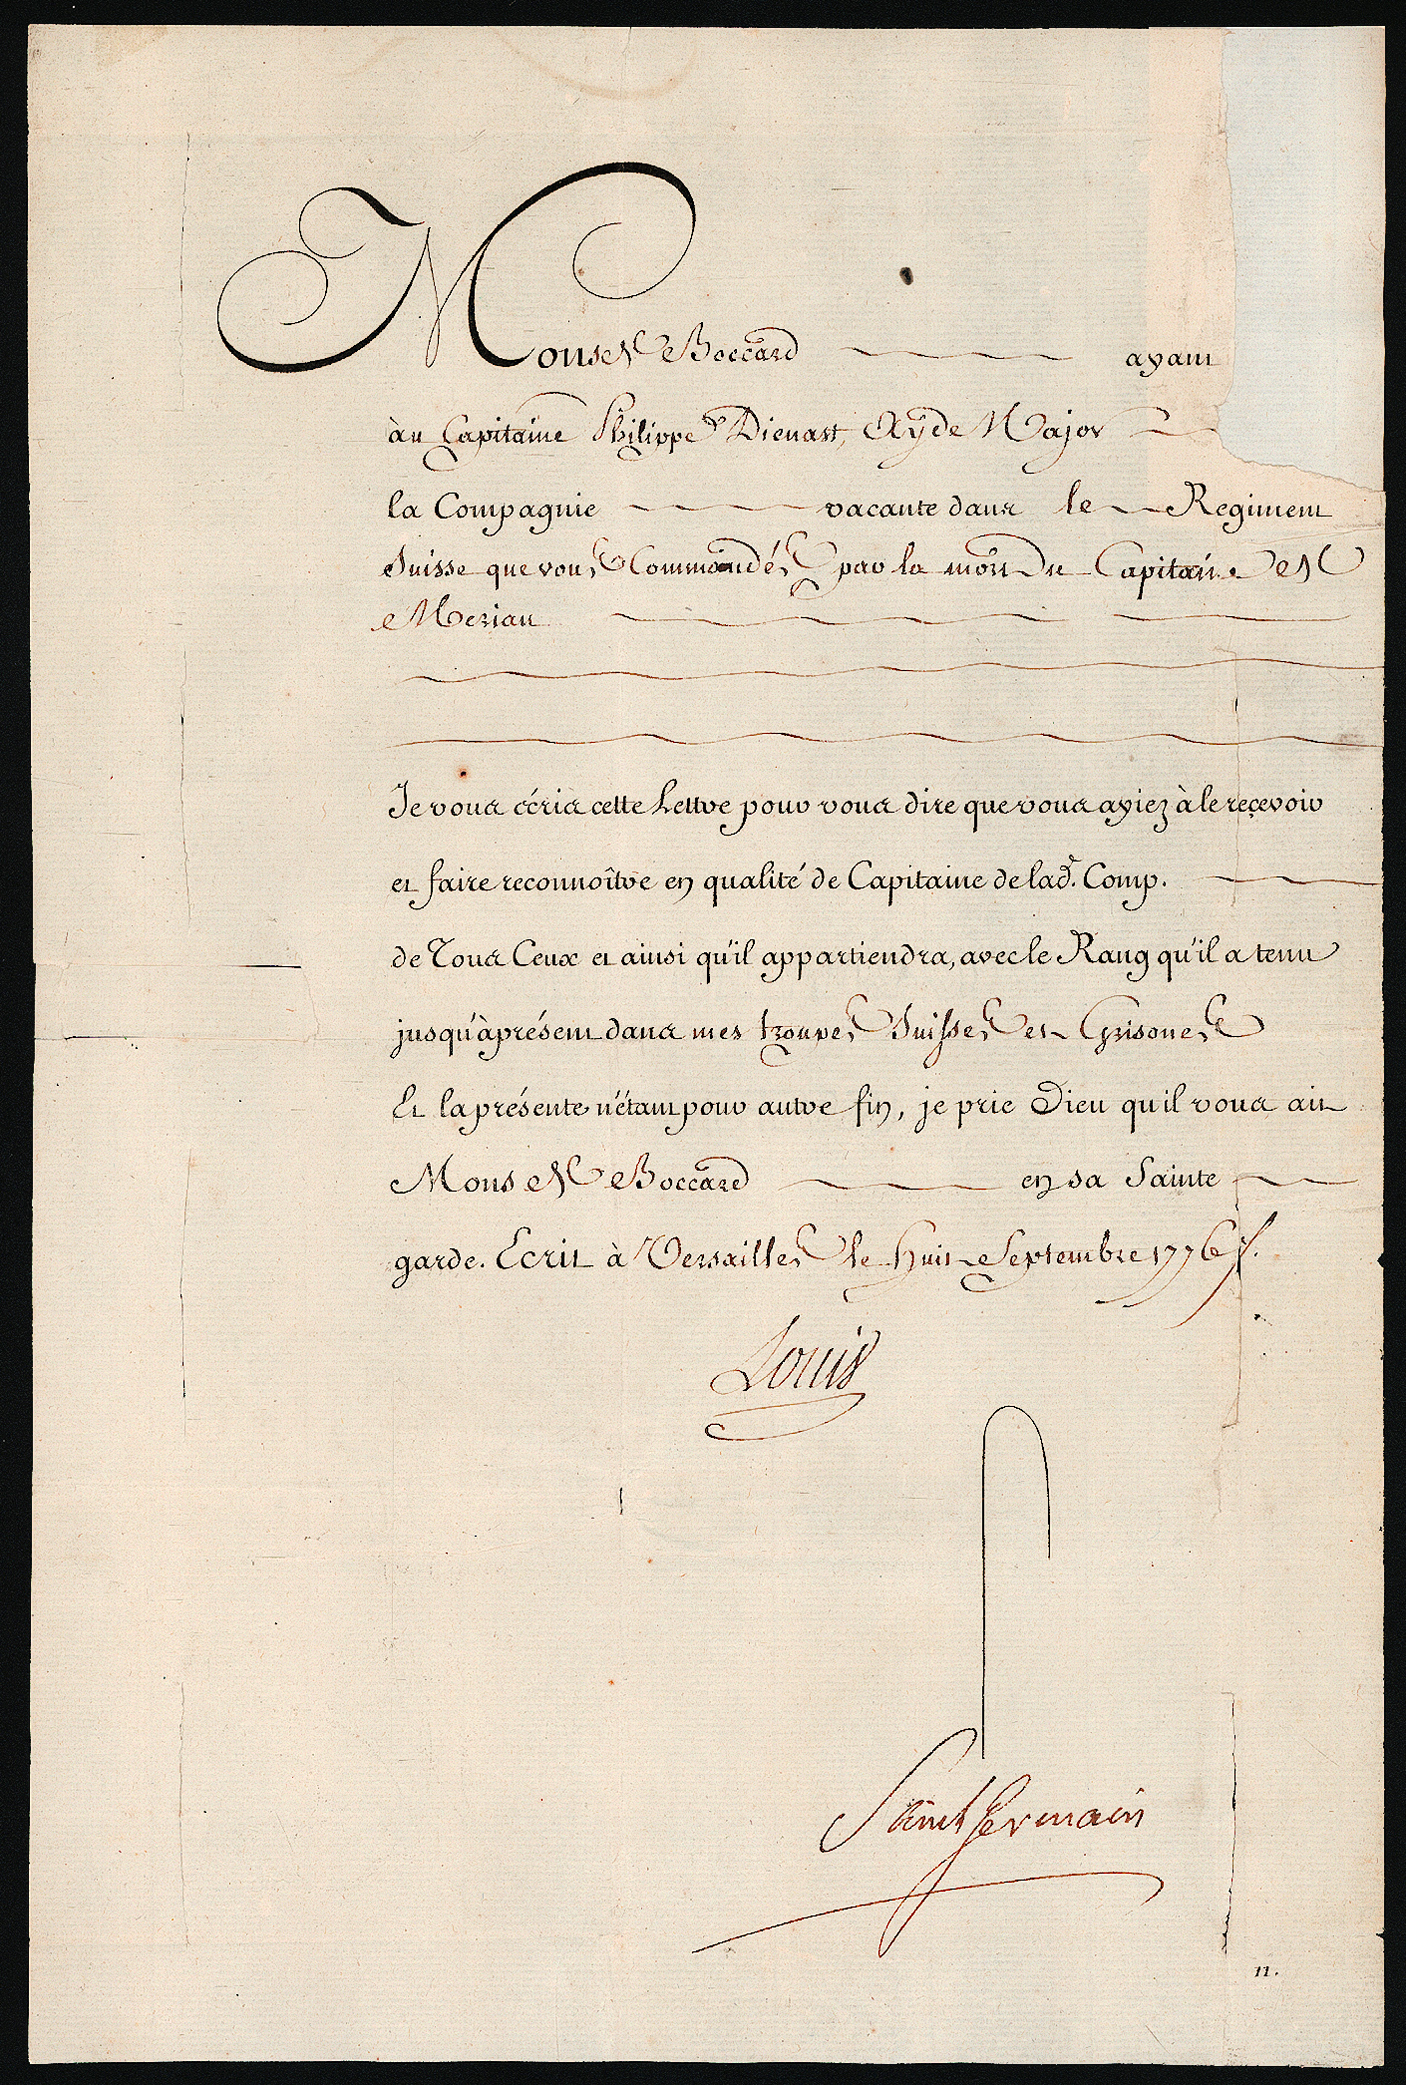 Mons. de Boccard ayant
au Capitaine Philippe Dienast, Ayde Major
la Compagnie vacante dans le Regiment
Suisse que vous Commandés par la mort du Capitaine de
Merian
Je vous écris cette Lettre pour vous dire que vous ayiez à le reçevoir
et faire reconnoître en qualité de Capitaine de lad.e Comp.
de Tous Ceux et ainsi qu'il appartiendra, avec le Rang qu'il a tenu
jusqu'àprésent dans mes troupes Suisses et Grisones
Et la présente n'étant pour autre fin, je prie Dieu qu'il vous ait
Mons. de Boccard en sa Sainte
garde. Ecrit à Versailles le Huit Septembre 1776.
Louis
Saint Germain
n.